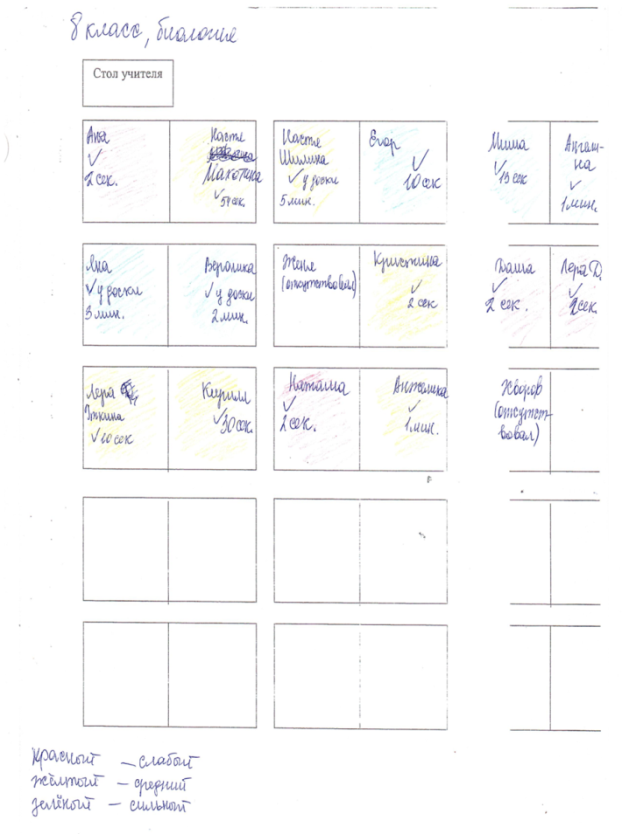 8 класс, биология
Стол учителя
Аня
✓
2 сек.
Настя
Махотина
✓ 57 сек
Настя
Шилина
✓ у доски
5 мин.
Егор
✓
10 сек
Миша
✓ 15 сек
Ангели-
на
✓
1 мин.
Яна
✓ у доски
3 мин.
Вероника
✓ у доски
2 мин.
Женя
(отсутствовал)
Кристина
✓
2 сек
Даша
✓
2 сек.
Лера Д.
✓
2 сек.
Лера
✓ 10 сек
Кирилл
✓ 30 сек.
Наташа
✓
2 сек.
Анжелика
✓
1 мин.
Жворов
(отсутст-
вовал)
красный – слабый
жёлтый – средний
зелёный – сильный